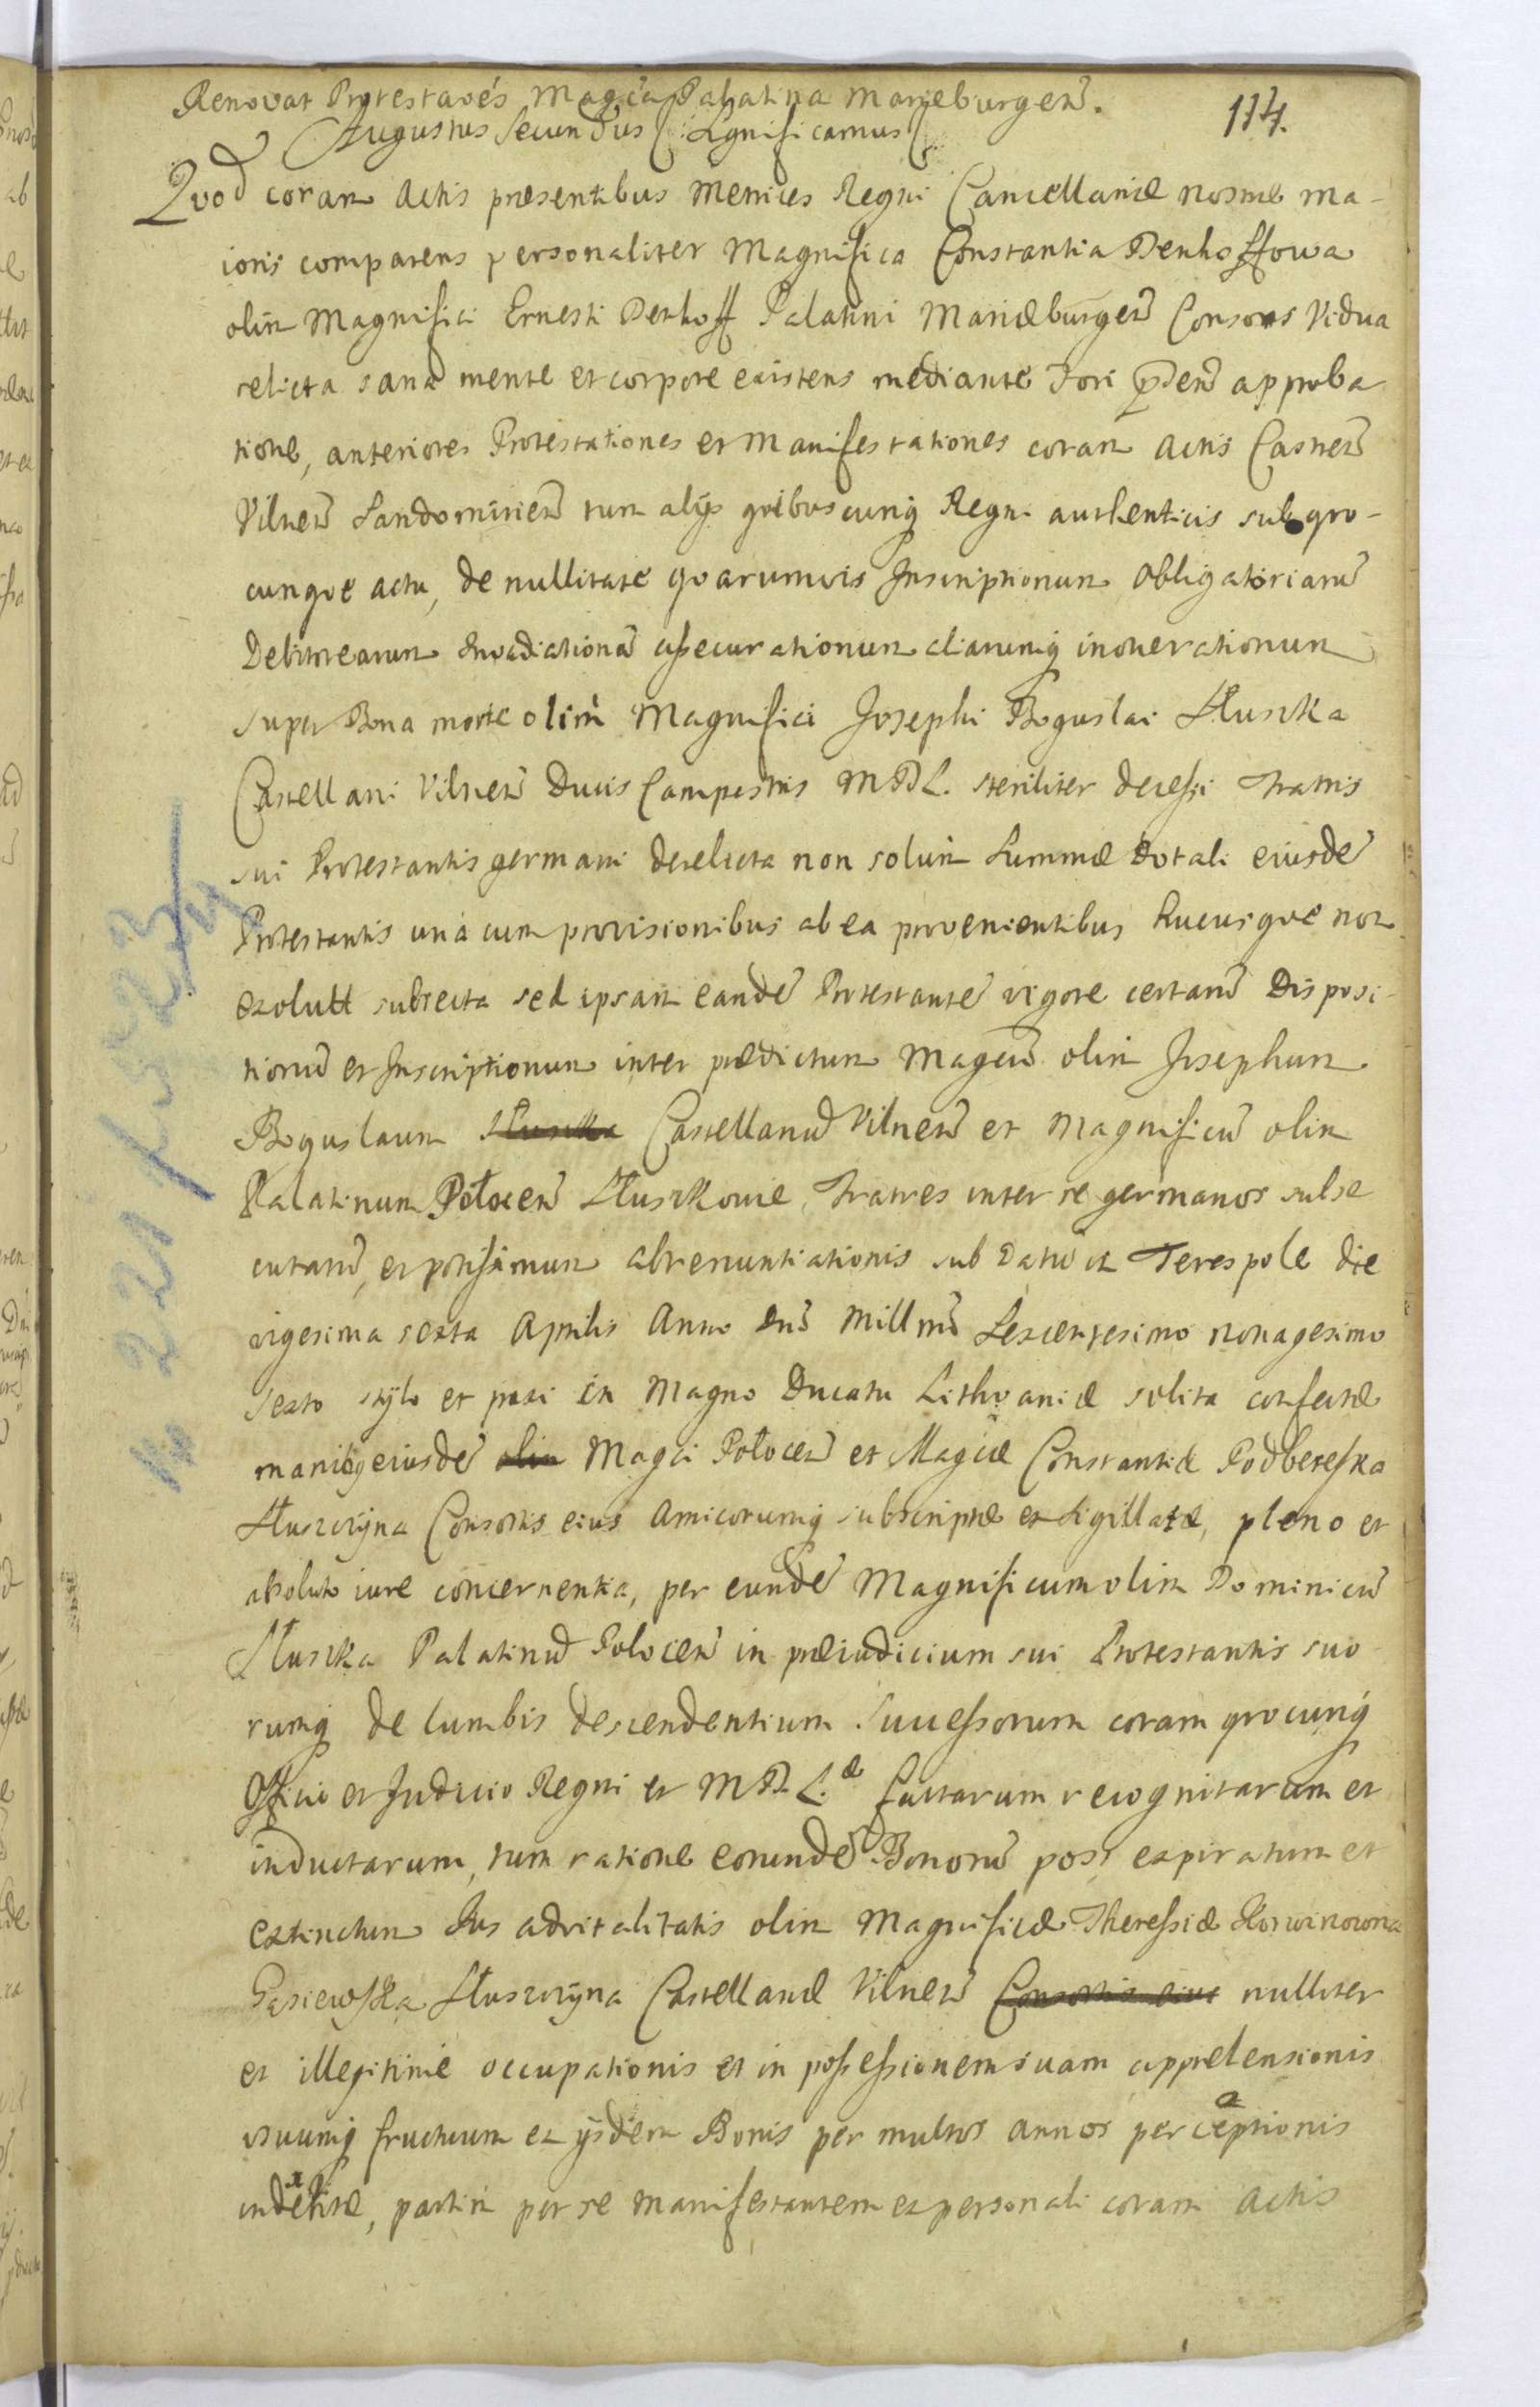 Renovat Protestaoēs Magca Palatina Marieburgen̄.
114.
Augustus Secundus Significamus
Qvod coram Actis præsentibus Metrices Regni Cancellariæ nostræ ma-
ioris comparens personaliter Magnifica Constantia Denhoffowa
olim Magnifici Ernesti Denhoff Palatini Mariæburgen̄ Consors Vidua
relicta sana mente et corpore existens mediante Fori p̄den̄ approba
tione, anteriores Protestationes et Manifestationes coram Actis Castren̄
Vilnen̄ Sandomirien̄ tum alijs qvibuscunq Regni authenticis sub qvo-
cunqve actu, de nullitate qvarumvis Inscriptionum Obligatoriarū
Debitorearum Invadiationū assecurationum aliarumq inonerationum
super Bona morte olim Magnifici Josephi Boguslai Słuszka
Castellani Vilnen̄ Ducis Campestris M D L. steriliter decessi Fratris
sui Protestantis germani derelicta non solum Summæ dotali eiusdē
Protestantis unà cum provisionibus ab ea provenientibus hucusqve non
exolutæ subiecta sed ipsam eandē Protestantē vigore certarū Disposi-
tionū et Inscriptionum inter prædictum Magcū olim Josephum
Boguslaum Słuszka Castellanū Vilnen̄ et Magnificū olim
Palatinum Połocen̄ Słuszkowie, Fratres inter se germanos subse
cutarū, et potissimum abrenuntiationis sub Datū in Terespole die
vigesima sexta Aprilis Anno Dn̄i Millm̄o Sexcentesimo nonagesimo
sexto stylo et praxi in Magno Ducatu Lithvaniæ solita confectæ
manibq eiusdē olim Magci Połocen̄ et Magcæ Constantiæ Podbereska
Słuszczyna Consortis eius Amicorumq subscriptæ et sigillatæ, pleno et
absoluto iure concernentia, per eundē Magnificum olim Dominicū
Słuszka Palatinū Polocen̄ in præiudicium sui Protestantis suo
rumq de lumbis descendentium Successorum coram qvocunq
Officio et Judicio Regni et M D. L.æ factarum recognitarum et
inductarum, tum ratione eorundē Bonorū post expiratum et
extinctum Jus advitalitatis olim Magnificæ Theressiæ Korwinowna
Gasiewska Słuszczyna Castellanæ Vilnen̄ Consortis eius nulliter
et illegitimè occupationis et in possessionem suam apprehensionis
usuumq fructuum ex ijsdem Bonis per multos annos perceptionis
indebitæ, partim per se manifestantem ex personali coram Actis